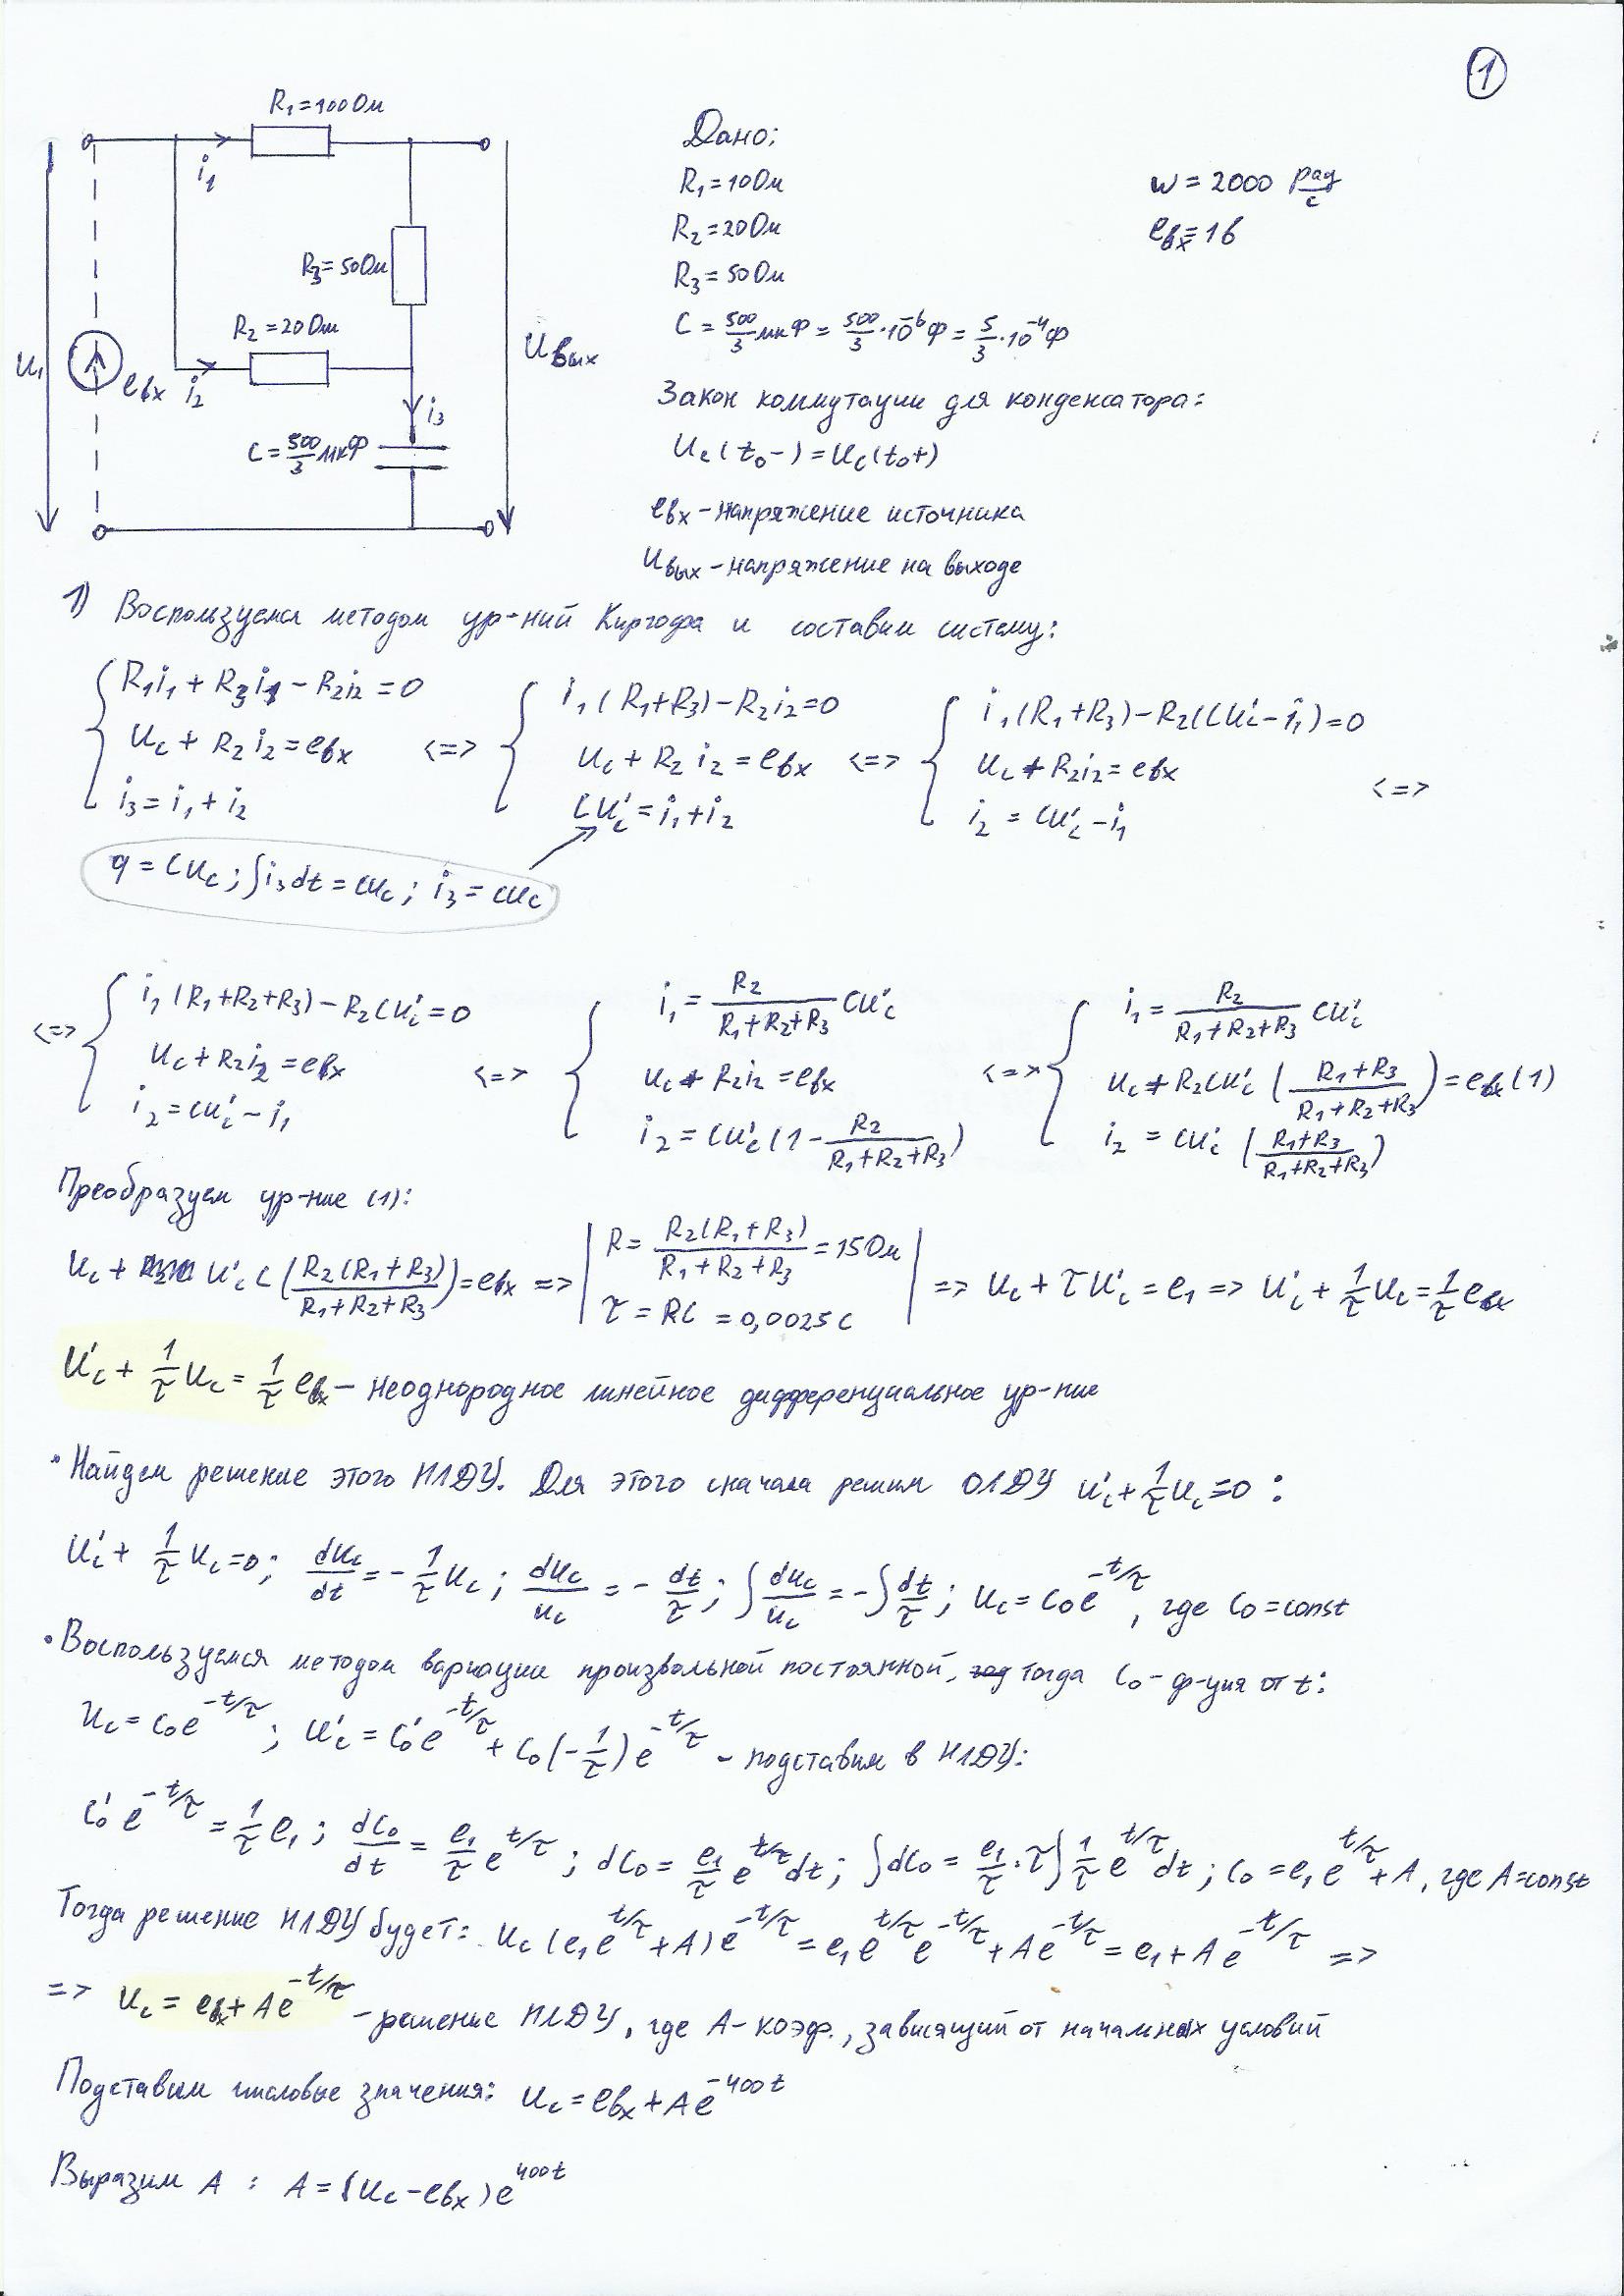 1
R₁=100м
R₃=50Ом
R₂=20Ом
U₁
eвх
i₁
i₂
i₃
C=500/3 мкФ
Uвых
Дано:
R₁=10Ом
R₂=20Ом
R₃=50Ом
C = 500/3 мкФ = 500/3·10⁻⁶Ф = 5/3·10⁻⁴Ф
w = 2000 рад/с
eвх=1В
Закон коммутации для конденсатора:
Uc(t₀-)=Uc(t₀+)
eвх-напряжение источника
Uвых-напряжение на выходе
1) Воспользуемся методом ур-ний Киргофа и составим систему:
{ R₁i₁+R₃i₁-R₂i₂=0
Uc+R₂i₂=eвх
i₃=i₁+i₂
<=> { i₁(R₁+R₃)-R₂i₂=0
Uc+R₂i₂=eвх
CU'c=i₁+i₂
<=> { i₁(R₁+R₃)-R₂(CU'c-i₁)=0
Uc+R₂i₂=eвх
i₂=CU'c-i₁
<=>
q=CUc; ∫i₃dt=CUc; i₃=CUc
<=> { i₁(R₁+R₂+R₃)-R₂CU'c=0
Uc+R₂i₂=eвх
i₂=CU'c-i₁
<=> { i₁=R₂/(R₁+R₂+R₃) CU'c
Uc+R₂i₂=eвх
i₂=CU'c(1-R₂/(R₁+R₂+R₃))
<=> { i₁=R₂/(R₁+R₂+R₃) CU'c
Uc+R₂CU'c((R₁+R₃)/(R₁+R₂+R₃))=eвх(1)
i₂=CU'c((R₁+R₃)/(R₁+R₂+R₃))
Преобразуем ур-ние (1):
Uc+U'cC(R₂(R₁+R₃)/(R₁+R₂+R₃))=eвх => | R=R₂(R₁+R₃)/(R₁+R₂+R₃)=15Ом
τ=RC=0,0025с | => Uc+τU'c=e₁ => U'c+1/τ Uc=1/τ eвх
U'c+1/τ Uc=1/τ eвх - неоднородное линейное дифференциальное ур-ние
• Найдем решение этого НЛДУ. Для этого сначала решим ОЛДУ U'c+1/τ Uc=0:
U'c+1/τ Uc=0; dUc/dt=-1/τ Uc; dUc/Uc=-dt/τ; ∫dUc/Uc=-∫dt/τ; Uc=C₀e^(-t/τ), где C₀=const
• Воспользуемся методом вариации произвольной постоянной, тогда C₀-ф-ция от t:
Uc=C₀e^(-t/τ); U'c=C₀'e^(-t/τ)+C₀(-1/τ)e^(-t/τ) - подставим в НЛДУ:
C₀'e^(-t/τ)=1/τ e₁; dC₀/dt=e₁/τ e^(t/τ); dC₀=e₁/τ e^(t/τ)dt; ∫dC₀=e₁/τ·τ∫1/τ e^(t/τ)dt; C₀=e₁e^(t/τ)+A, где A=const
Тогда решение НЛДУ будет: Uc(e₁e^(t/τ)+A)e^(-t/τ)=e₁e^(t/τ)e^(-t/τ)+Ae^(-t/τ)=e₁+Ae^(-t/τ) =>
=> Uc=eвх+Ae^(-t/τ) - решение НЛДУ, где A-коэф., зависящий от начальных условий
Подставим числовые значения: Uc=eвх+Ae^(-400t)
Выразим A: A=(Uc-eвх)e^(400t)